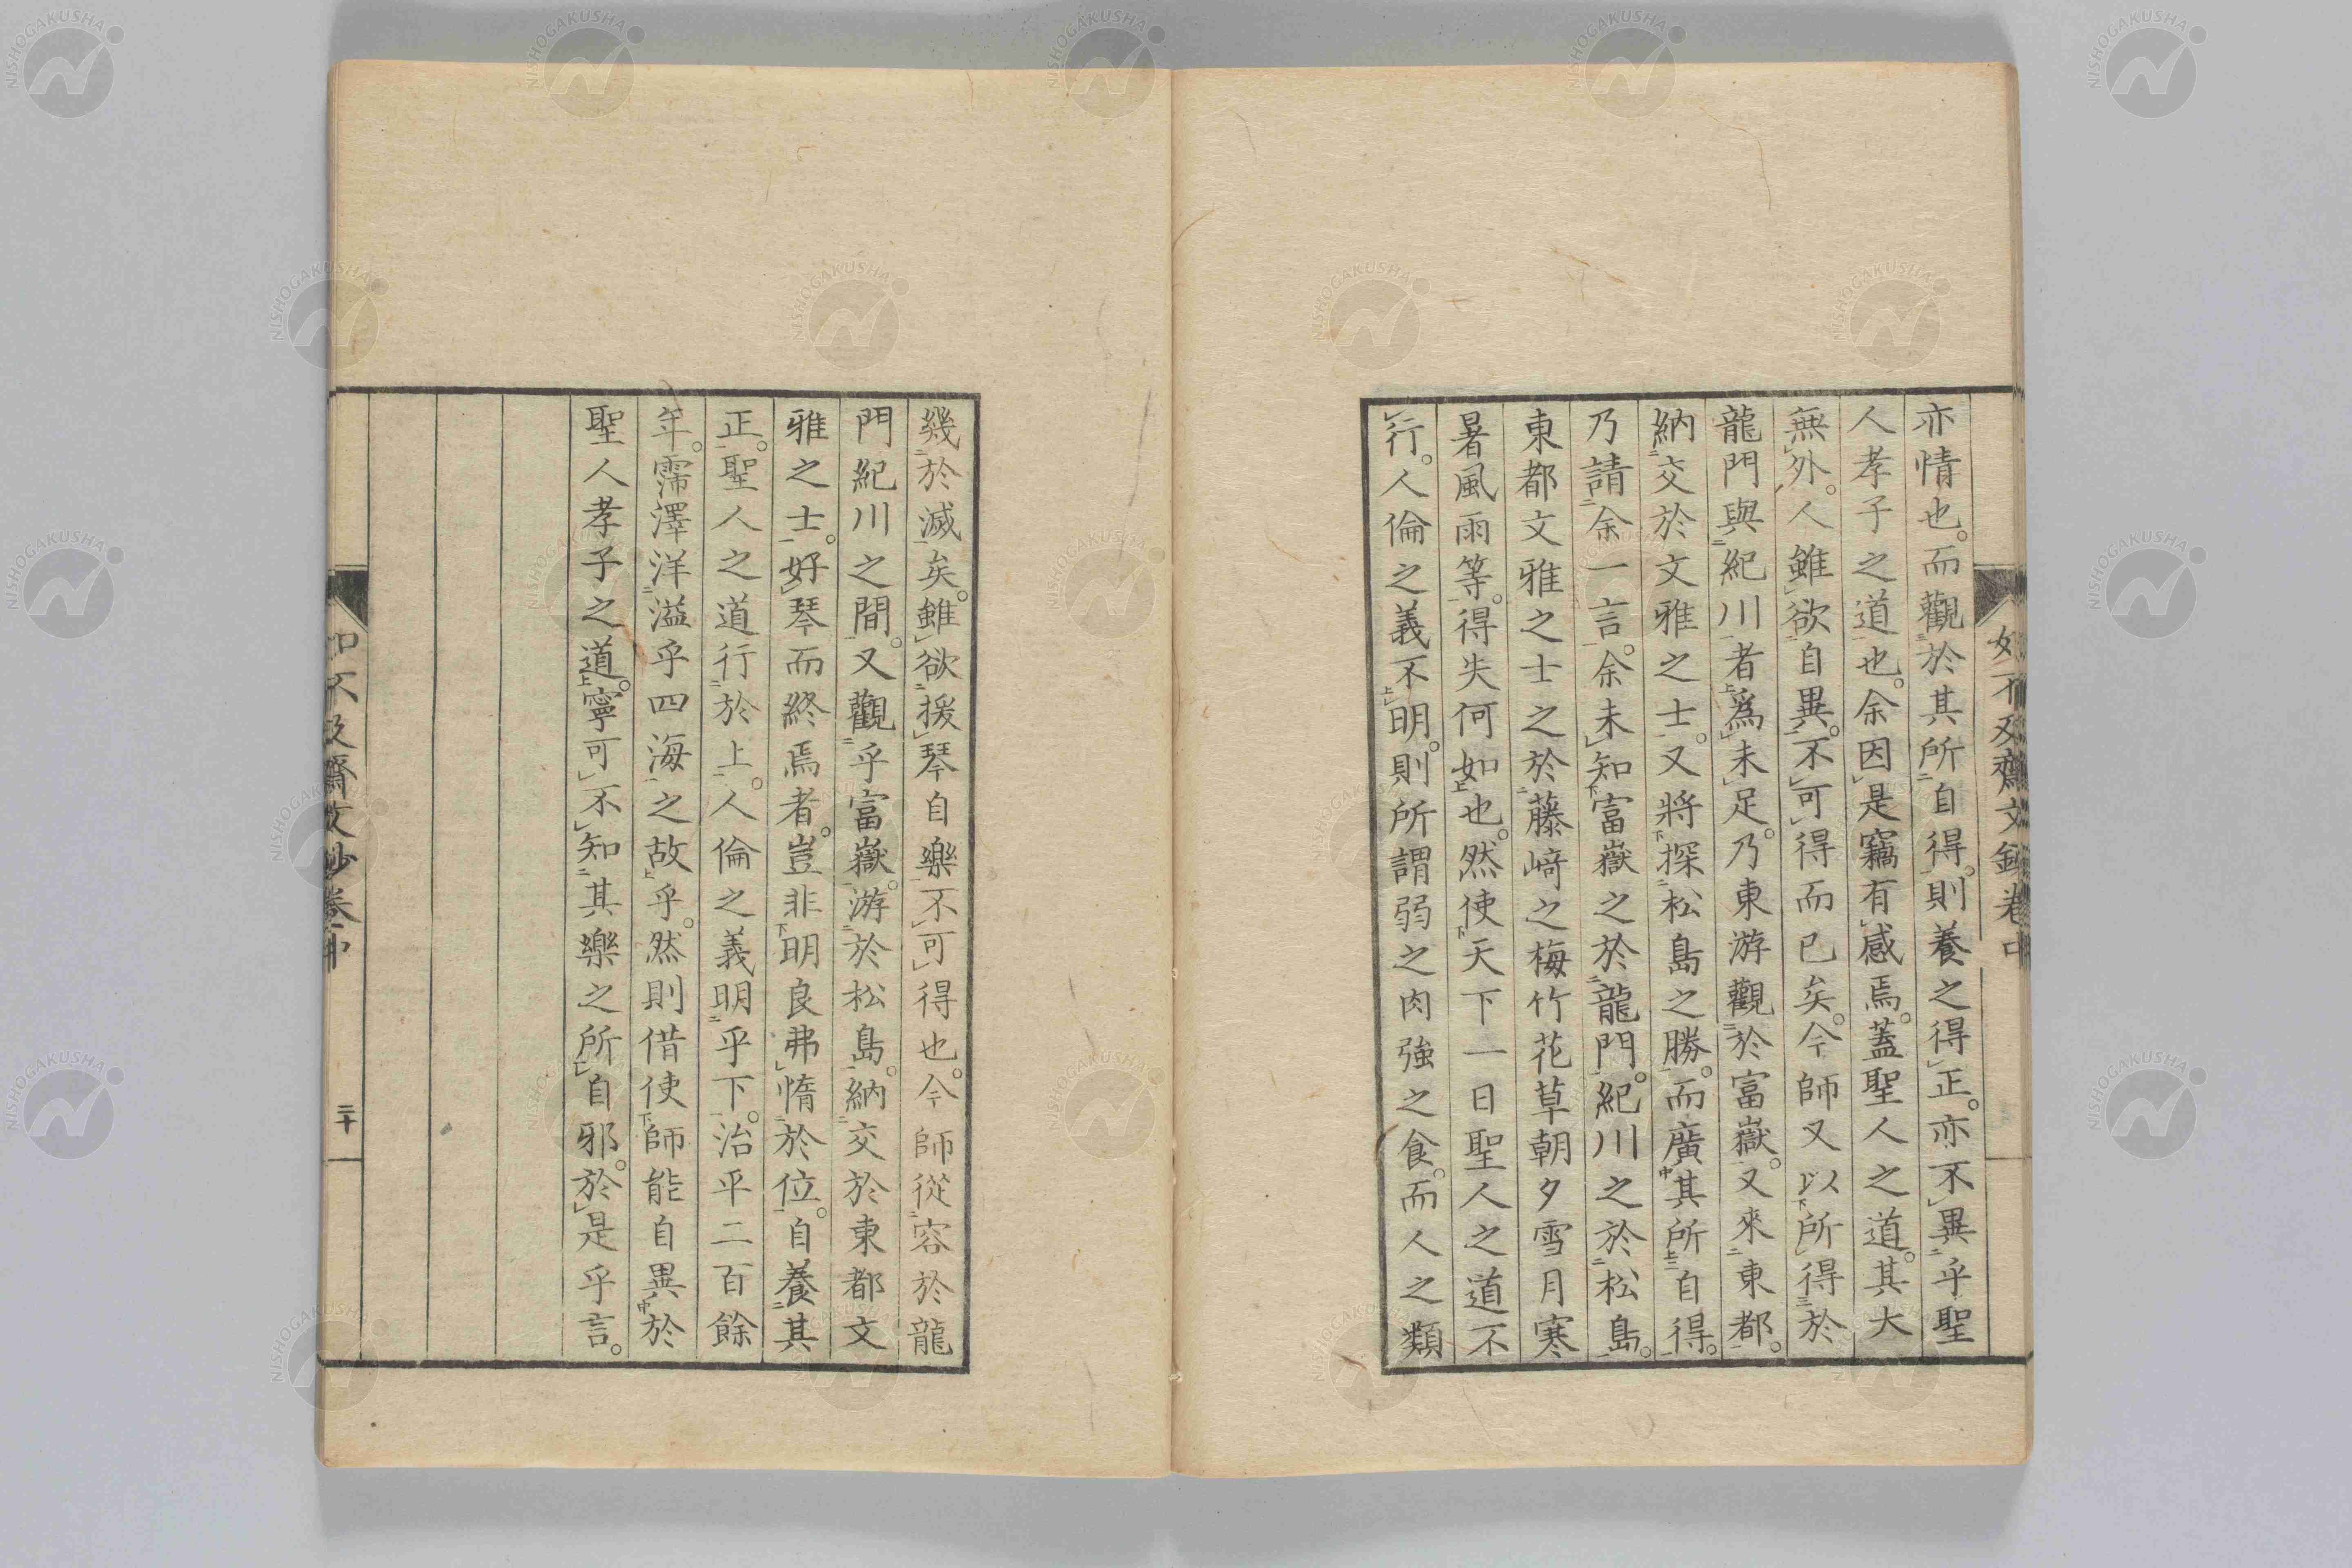 亦情也。而觀於其所自得。則養之得正。亦不異乎聖
人孝子之道也。余因是竊有感焉。蓋聖人之道。其大
無外。人雖欲自異。不可得而已矣。今師又以所得於
龍門與紀川者爲未足。乃東游觀於富嶽。又來東都。
納交於文雅之士。又將探松島之勝。而廣其所自得。
乃請余一言。余未知富嶽之於龍門。紀川之於松島。
東都文雅之士之於藤﨑之梅竹花草朝夕雪月寒
暑風雨等。得失何如也。然使天下一日聖人之道不
行。人倫之義不明。則所謂弱之肉強之食。而人之類
如不及齋文鈔卷中
幾於滅矣。雖欲援琴自樂不可得也。今師從容於龍
門紀川之間。又觀乎富嶽。游於松島。納交於東都文
雅之士。好琴而終焉者。豈非明良弗惰於位。自養其
正。聖人之道行於上。人倫之義明乎下。治平二百餘
年。霈澤洋溢乎四海之故乎。然則借使師能自異於
聖人孝子之道。寧可不知其樂之所自邪。於是乎言。
如不及齋文鈔卷中
二十
NISHOGAKUSHA